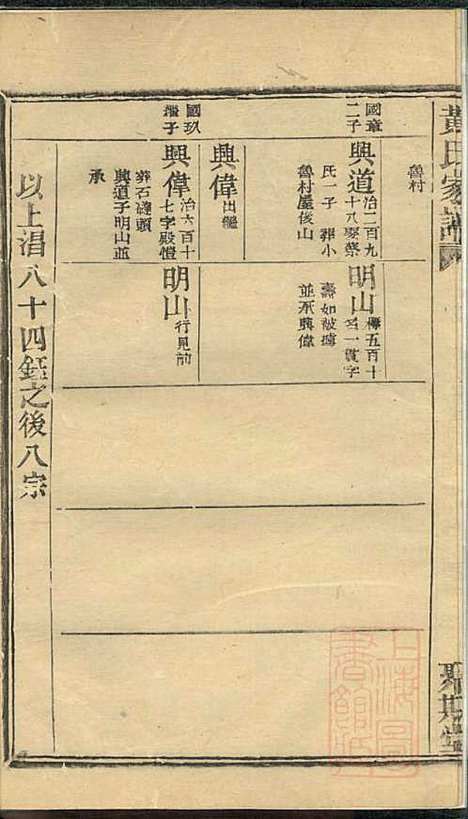 黃氏家譜
魯村
國章
二子
興道
冶二百九
十八娶蔡
氏一子 葬小
魯村屋後山
明山
五百十
名一貫字
壽如
並承興偉
興偉
出繼
國玖
繼子
興偉
冶六百十
七字殿愷
葬石碴頭
興道子明山並
承
明山
行見前
以上淐八十四鉦之後八宗
上海圖
書館藏